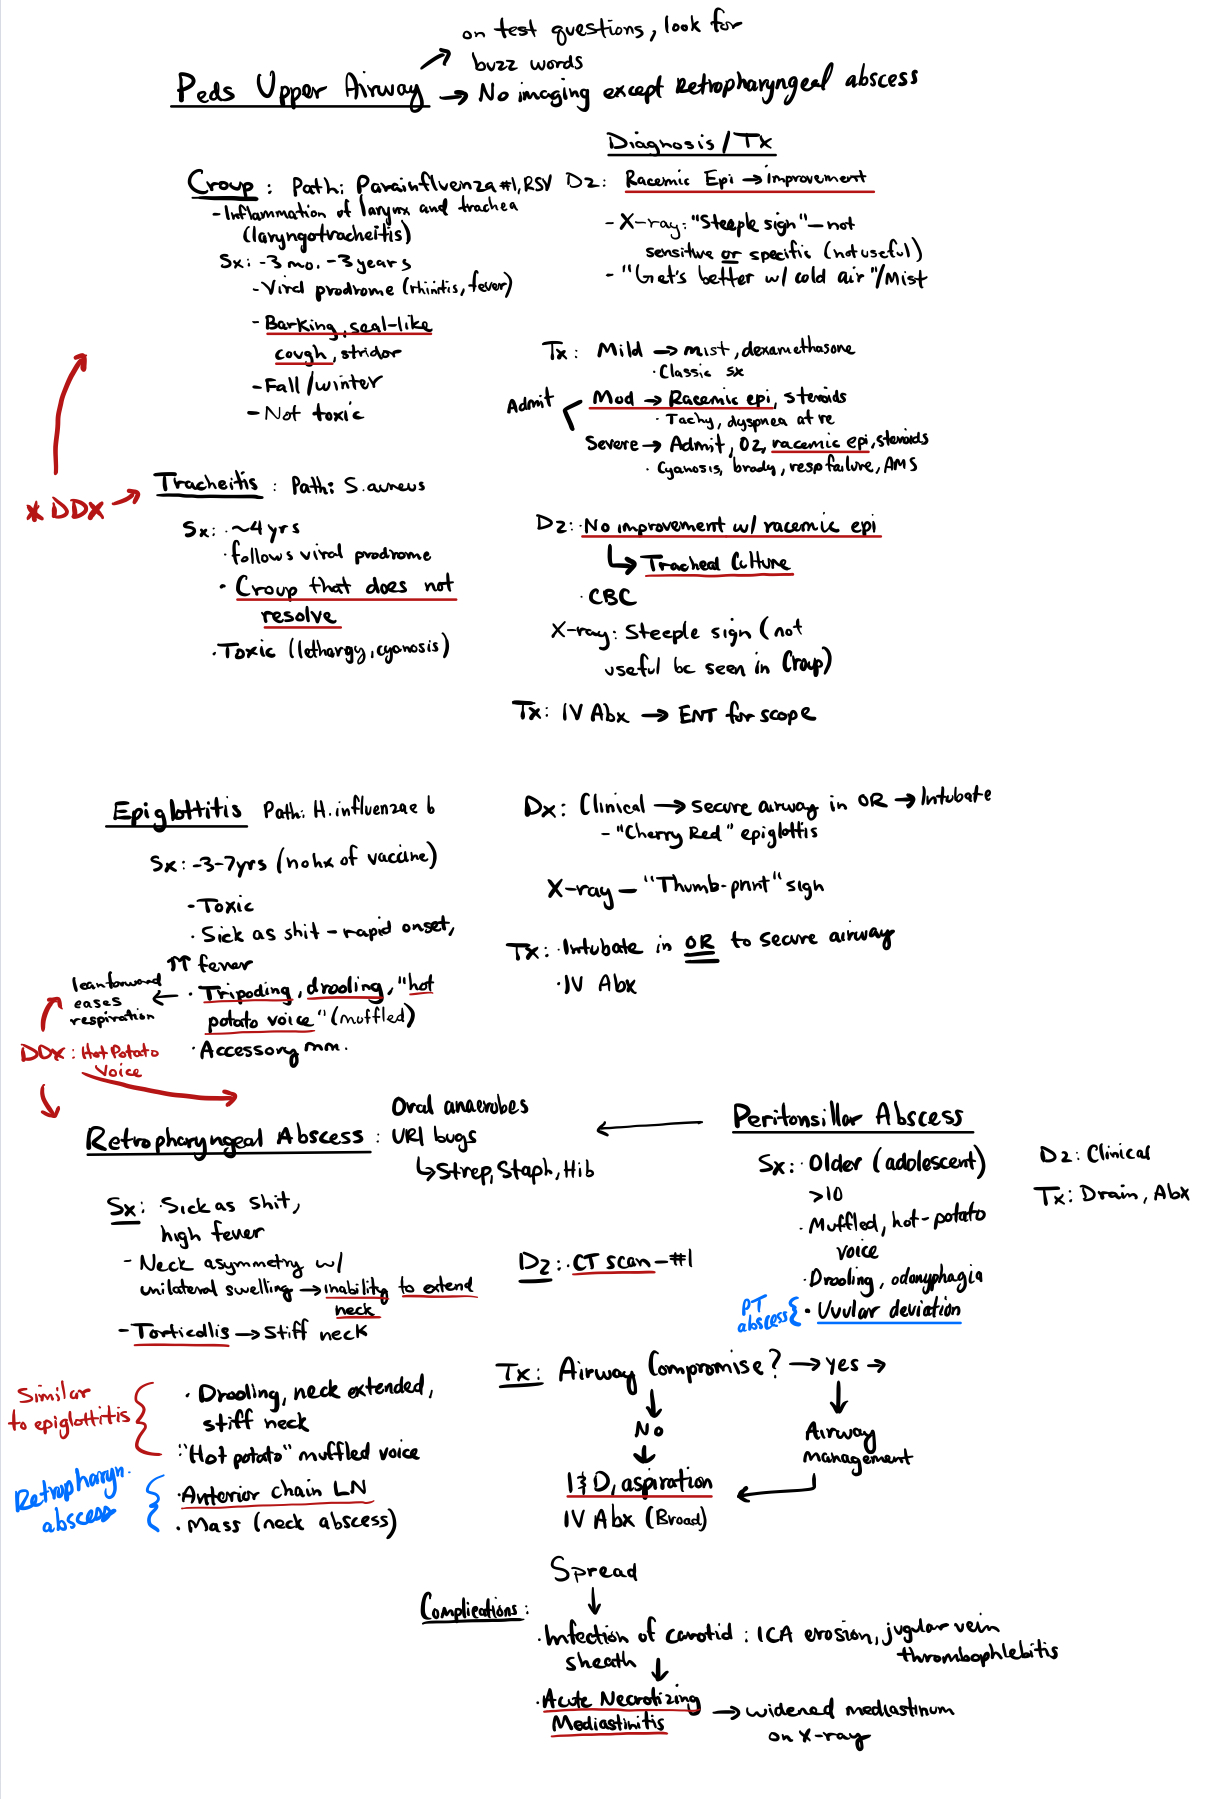 on test questions, look for
buzz words
Peds Upper Airway → No imaging except Retropharyngeal abscess
Diagnosis / Tx
Croup : Path: Parainfluenza #1, RSV
- Inflammation of larynx and trachea
(laryngotracheitis)
Sx: - 3 mo. - 3 years
- Viral prodrome (rhinitis, fever)
- Barking, seal-like
cough, stridor
- Fall / winter
- Not toxic
Dz: Racemic Epi → improvement
- X-ray: "Steeple sign" - not
sensitive or specific (not useful)
- "Get's better w/ cold air"/Mist
Tx: Mild → mist, dexamethasone
· Classic sx
Admit
Mod → Racemic epi, steroids
· Tachy, dyspnea at re
Severe → Admit, O2, racemic epi, steroids
· Cyanosis, brady, resp failure, AMS
* DDX →
Tracheitis : Path: S. aureus
Sx: · ~4 yrs
· follows viral prodrome
· Croup that does not
resolve
· Toxic (lethargy, cyanosis)
Dz: · No improvement w/ racemic epi
↳ Tracheal Culture
· CBC
X-ray: Steeple sign (not
useful bc seen in Croup)
Tx: IV Abx → ENT for scope
Epiglottitis Path: H. influenzae b
Sx: - 3-7yrs (no hx of vaccine)
- Toxic
· Sick as shit - rapid onset,
↑↑ fever
· Tripoding, drooling, "hot
potato voice" (muffled)
· Accessory mm.
lean forward
eases
respiration
←
DDx: Hot Potato
Voice
Dx: Clinical → secure airway in OR → Intubate
- "Cherry Red" epiglottis
X-ray - "Thumb-print" sign
Tx: · Intubate in OR to secure airway
· IV Abx
Retropharyngeal Abscess :
Oral anaerobes
URI bugs
↳ Strep, Staph, Hib
Sx: · Sick as shit,
high fever
- Neck asymmetry w/
unilateral swelling → inability to extend
neck
- Torticollis → Stiff neck
Similar
to epiglottitis
· Drooling, neck extended,
stiff neck
"Hot potato" muffled voice
Retropharyn.
abscess
· Anterior chain LN
· Mass (neck abscess)
Peritonsillar Abscess
Sx: · Older (adolescent)
>10
· Muffled, hot-potato
voice
· Drooling, odonyphagia
PT
abscess
· Uvular deviation
Dz: Clinical
Tx: Drain, Abx
Dz: · CT scan - #1
Tx: Airway Compromise? → yes →
No
Airway
management
I & D, aspiration
IV Abx (Broad)
Complications:
Spread
· Infection of carotid : ICA erosion, jugular vein
sheath
thrombophlebitis
· Acute Necrotizing
Mediastinitis
→ widened mediastinum
on X-ray